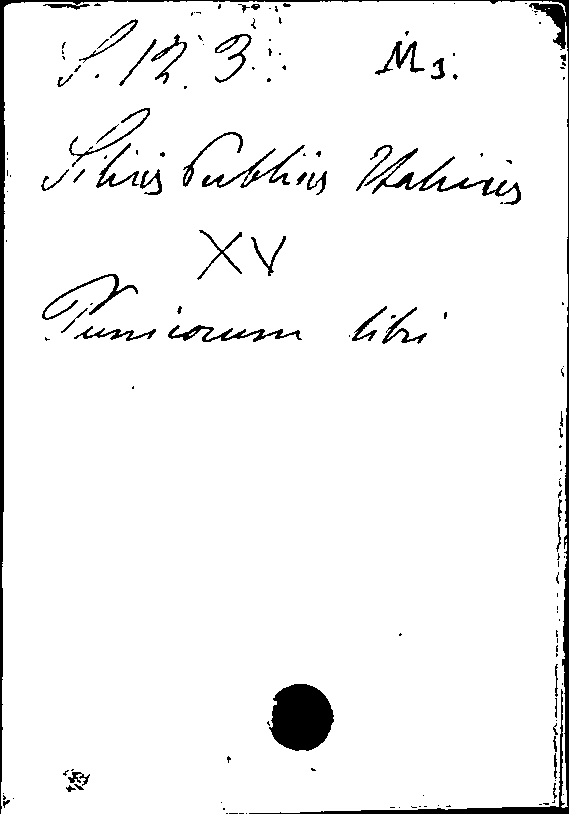 S. 12. 3. Ms.
Silius Publius Italicus
XV
Punicorum libri